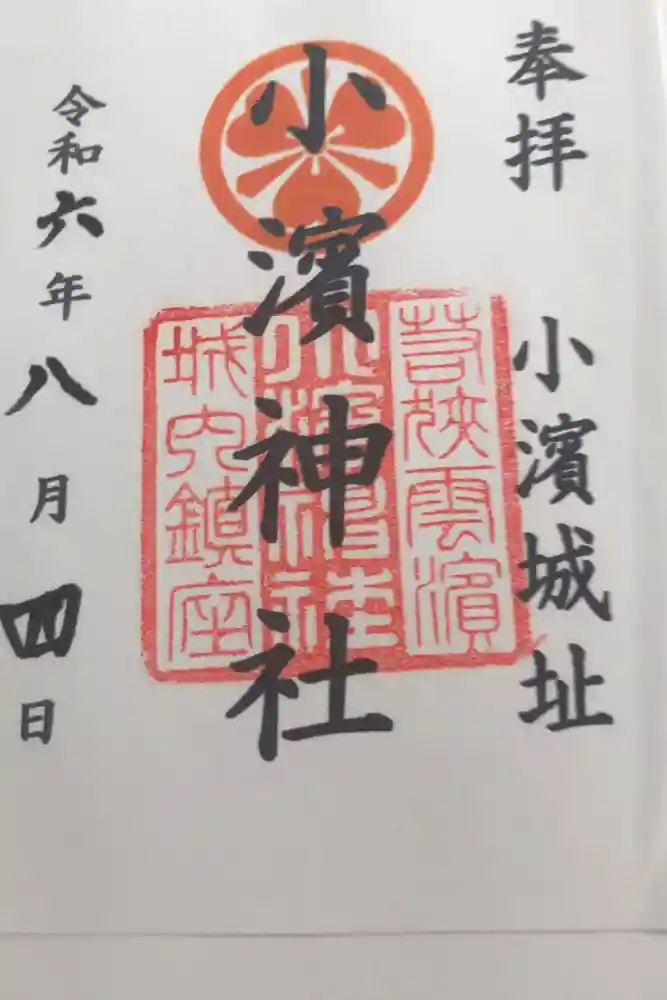 奉拝 小濱城址
小濱神社
若狭雲濱
小濱神社
城内鎮座
令和六年八月四日